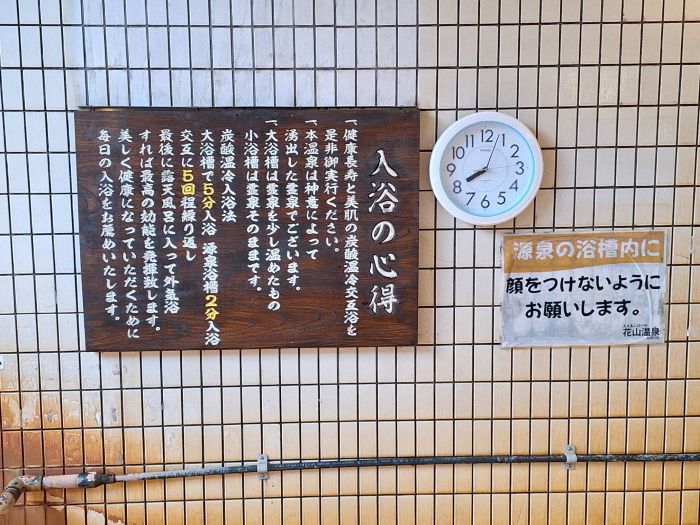 入浴の心得
一、健康長寿と美肌の炭酸温冷交互浴を
是非御実行ください。
一、本温泉は神意によって
湧出した霊泉でございます。
一、大浴槽は霊泉を少し温めたもの
小浴槽は霊泉そのままです。
炭酸温冷入浴法
大浴槽で5分入浴 源泉浴槽2分入浴
交互に5回程繰り返し
最後に露天風呂に入って外気浴
すれば最高の効能を発揮致します。
美しく健康になっていただくために
毎日の入浴をお薦めいたします。
12
1
2
3
4
5
6
7
8
9
10
11
源泉の浴槽内に
顔をつけないように
お願いします。
花山温泉